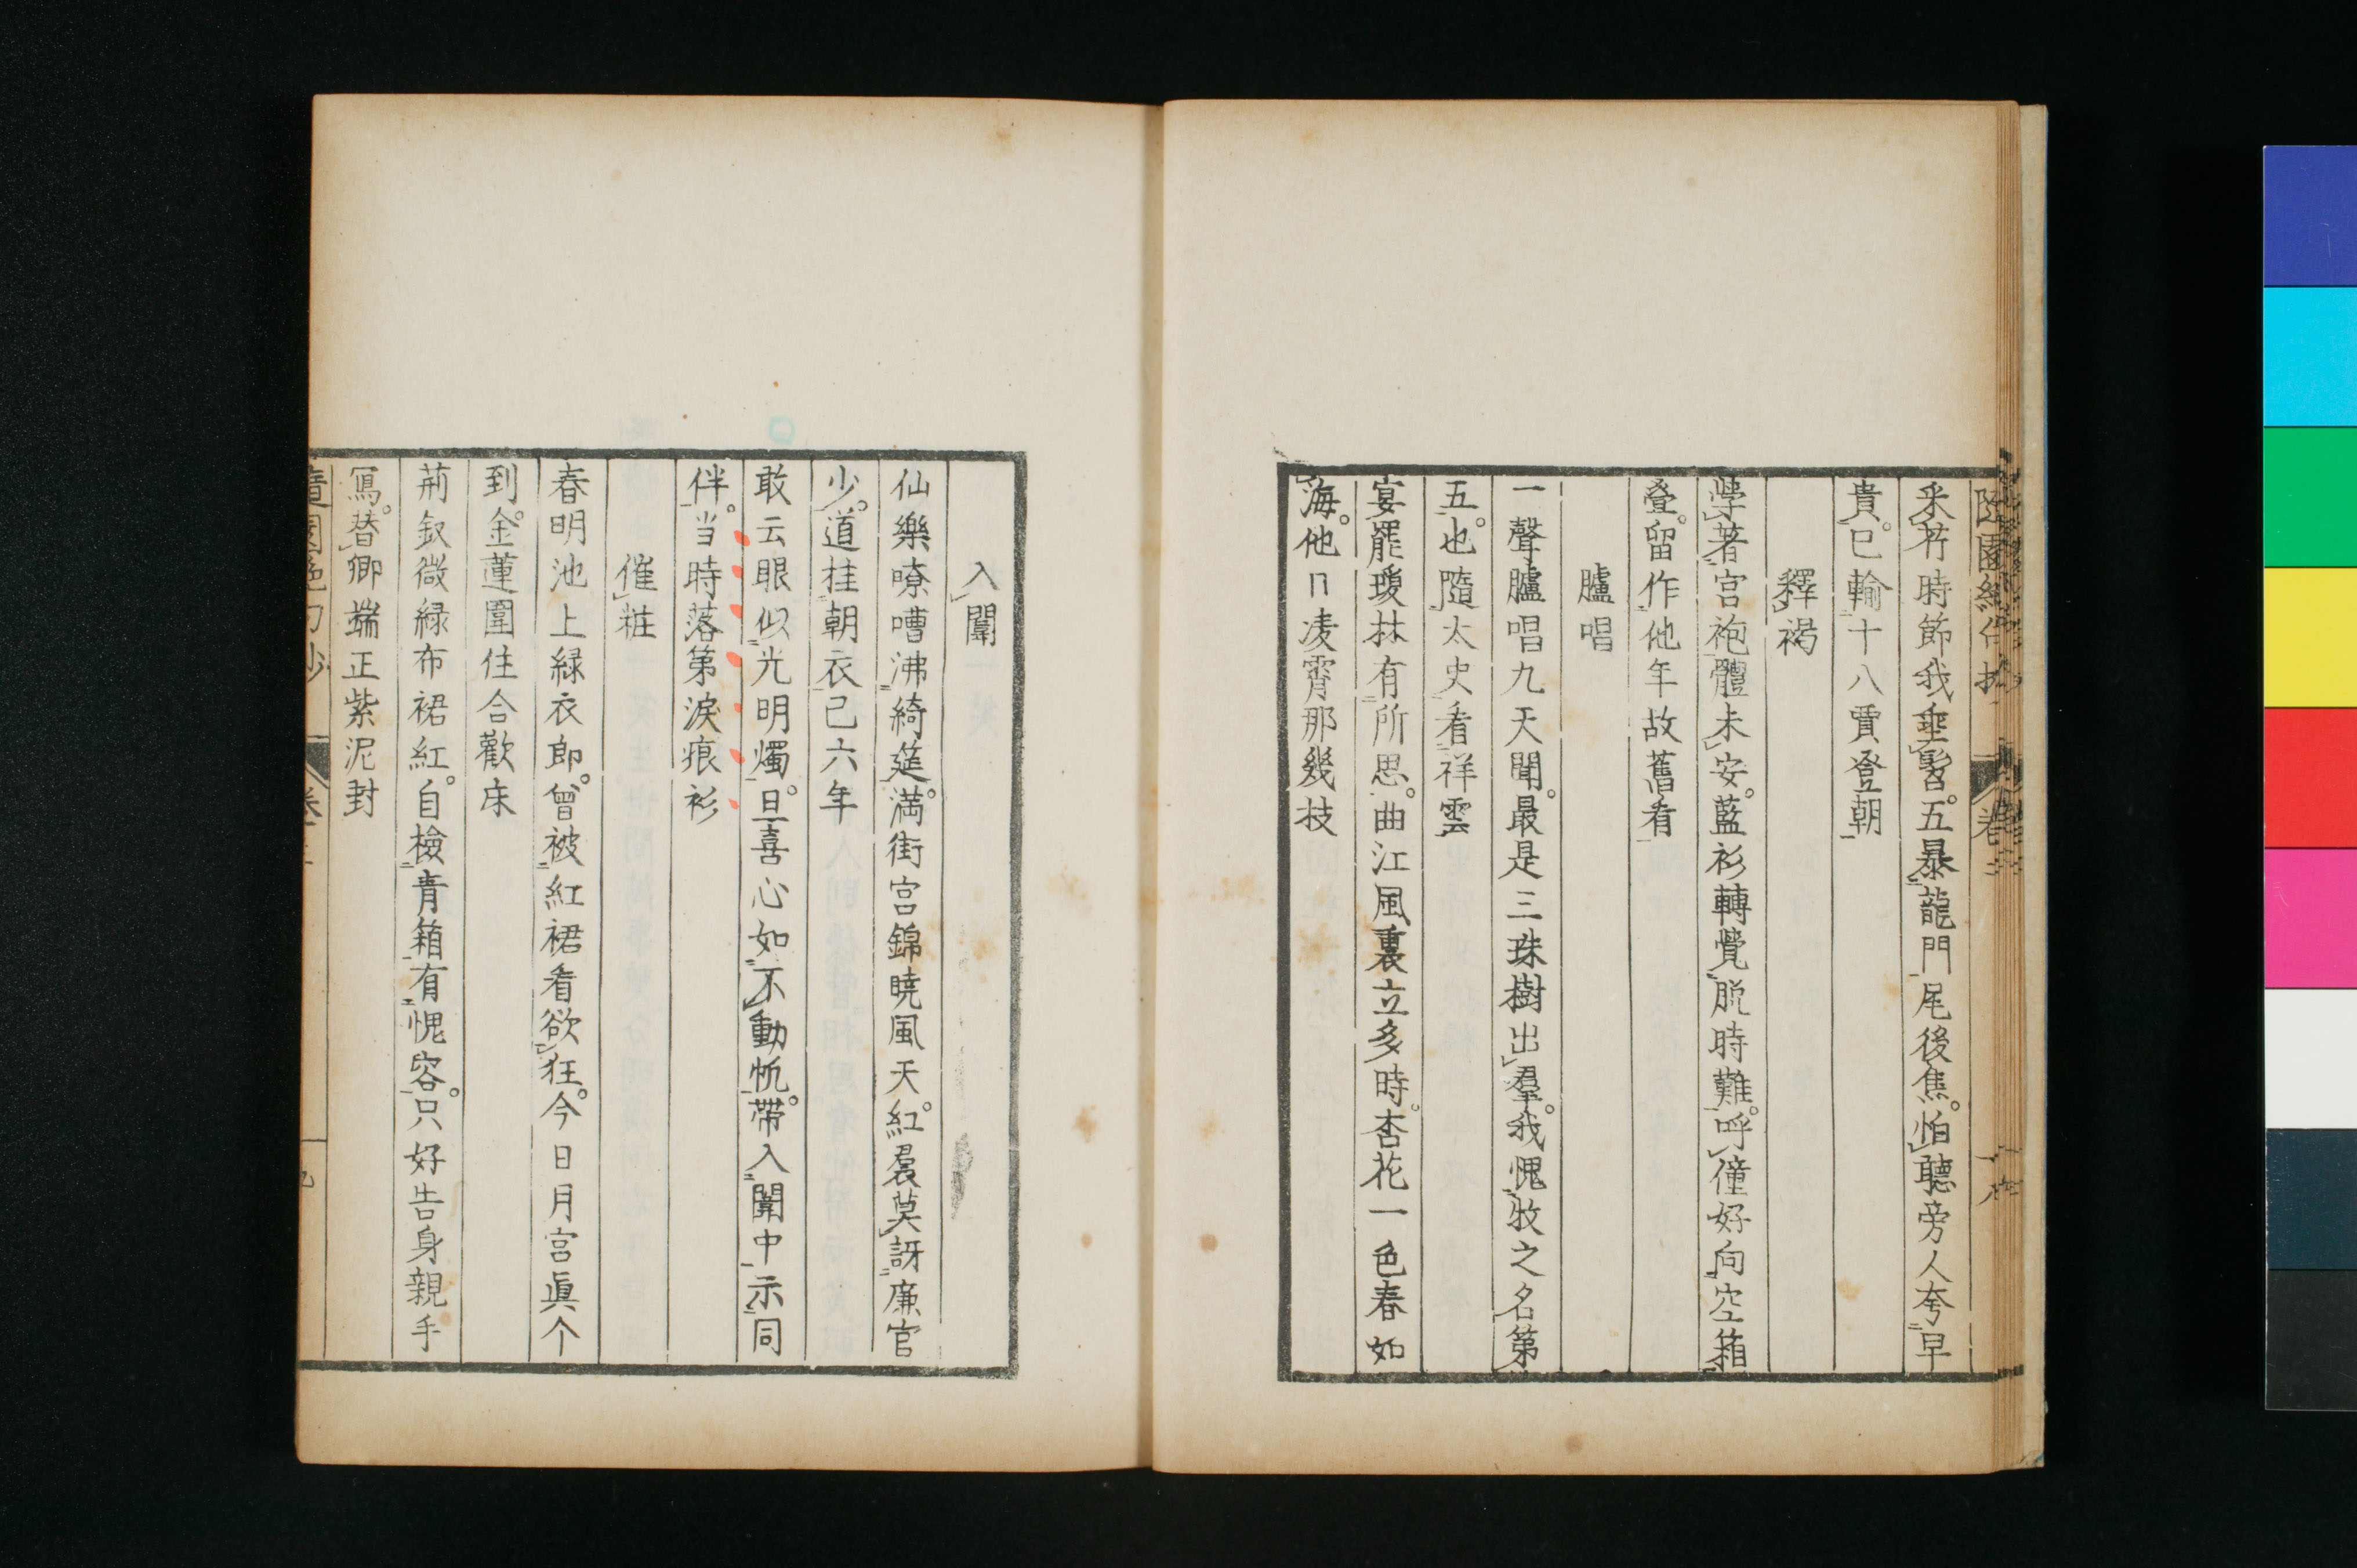 采芹時節我垂髫五暴龍門尾後焦怕聽旁人夸早
貴已輸十八賈登朝
釋褐
學著宮袍體未安藍衫轉覺脱時難呼僮好向空箱
叠留作他年故舊看
臚唱
一聲臚唱九天聞最是三珠樹出羣我愧牧之名第
五也隨太史看祥雲
宴罷瓊林有所思曲江風裏立多時杏花一色春如
海他日凌霄那幾技
入闈
仙樂嘹嘈沸綺筵滿街宮錦曉風天紅裠莫訝廉官
少道挂朝衣已六年
敢云眼似光明燭且喜心如不動帆帶入闈中示同
伴当時落第淚痕衫
催粧
春明池上緑衣郎曾被紅裙看欲狂今日月宮眞个
到金蓮圍住合歡床
荊釵微緑布裙紅自檢青箱有愧容只好告身親手
寫替卿端正紫泥封